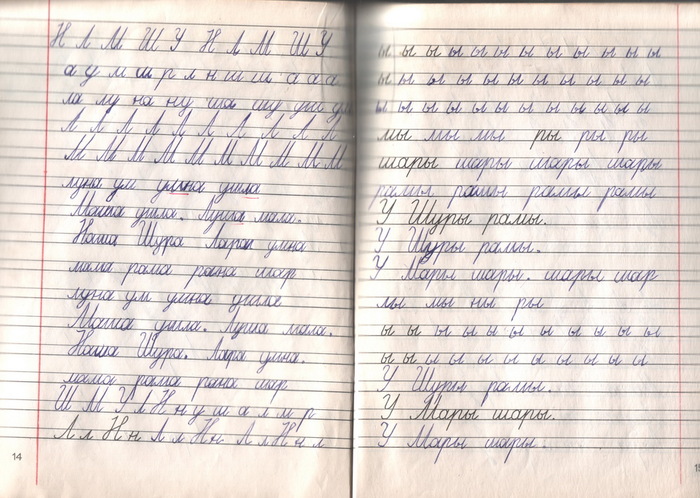 Н Л М Ш У Н Л М Ш У
а у м ш р л н ш ш а а а
ла лу на ну ша шу уш ум
Л Л Л Л Л Л Л Л Л Л
М М М М М М М М М М
луна ум умна ушла
Маша ушла. Луша мала.
Наша Шура Лара умна
мама рама рана шар
луна ум умна ушла
Маша ушла. Луша мала.
Наша Шура. Лара умна.
мама рама рана шар
Ш М У Л Н н у ш а л м р
Л л Н н Л л Н н Л л Н н л
14
ы ы ы ы ы ы ы ы ы ы ы ы
ы ы ы ы ы ы ы ы ы ы ы
ы ы ы ы ы ы ы ы ы ы ы ы
мы мы мы ры ры ры
шары шары шары шары
рамы рамы рамы рамы
У Шуры рамы.
У Шуры рамы.
У Мары шары. шары шар
мы мы ны ры
ы ы ы ы ы ы ы ы ы ы ы
ы ы ы ы ы ы ы ы ы ы ы
У Шуры рамы.
У Мары шары.
У Мары шары.